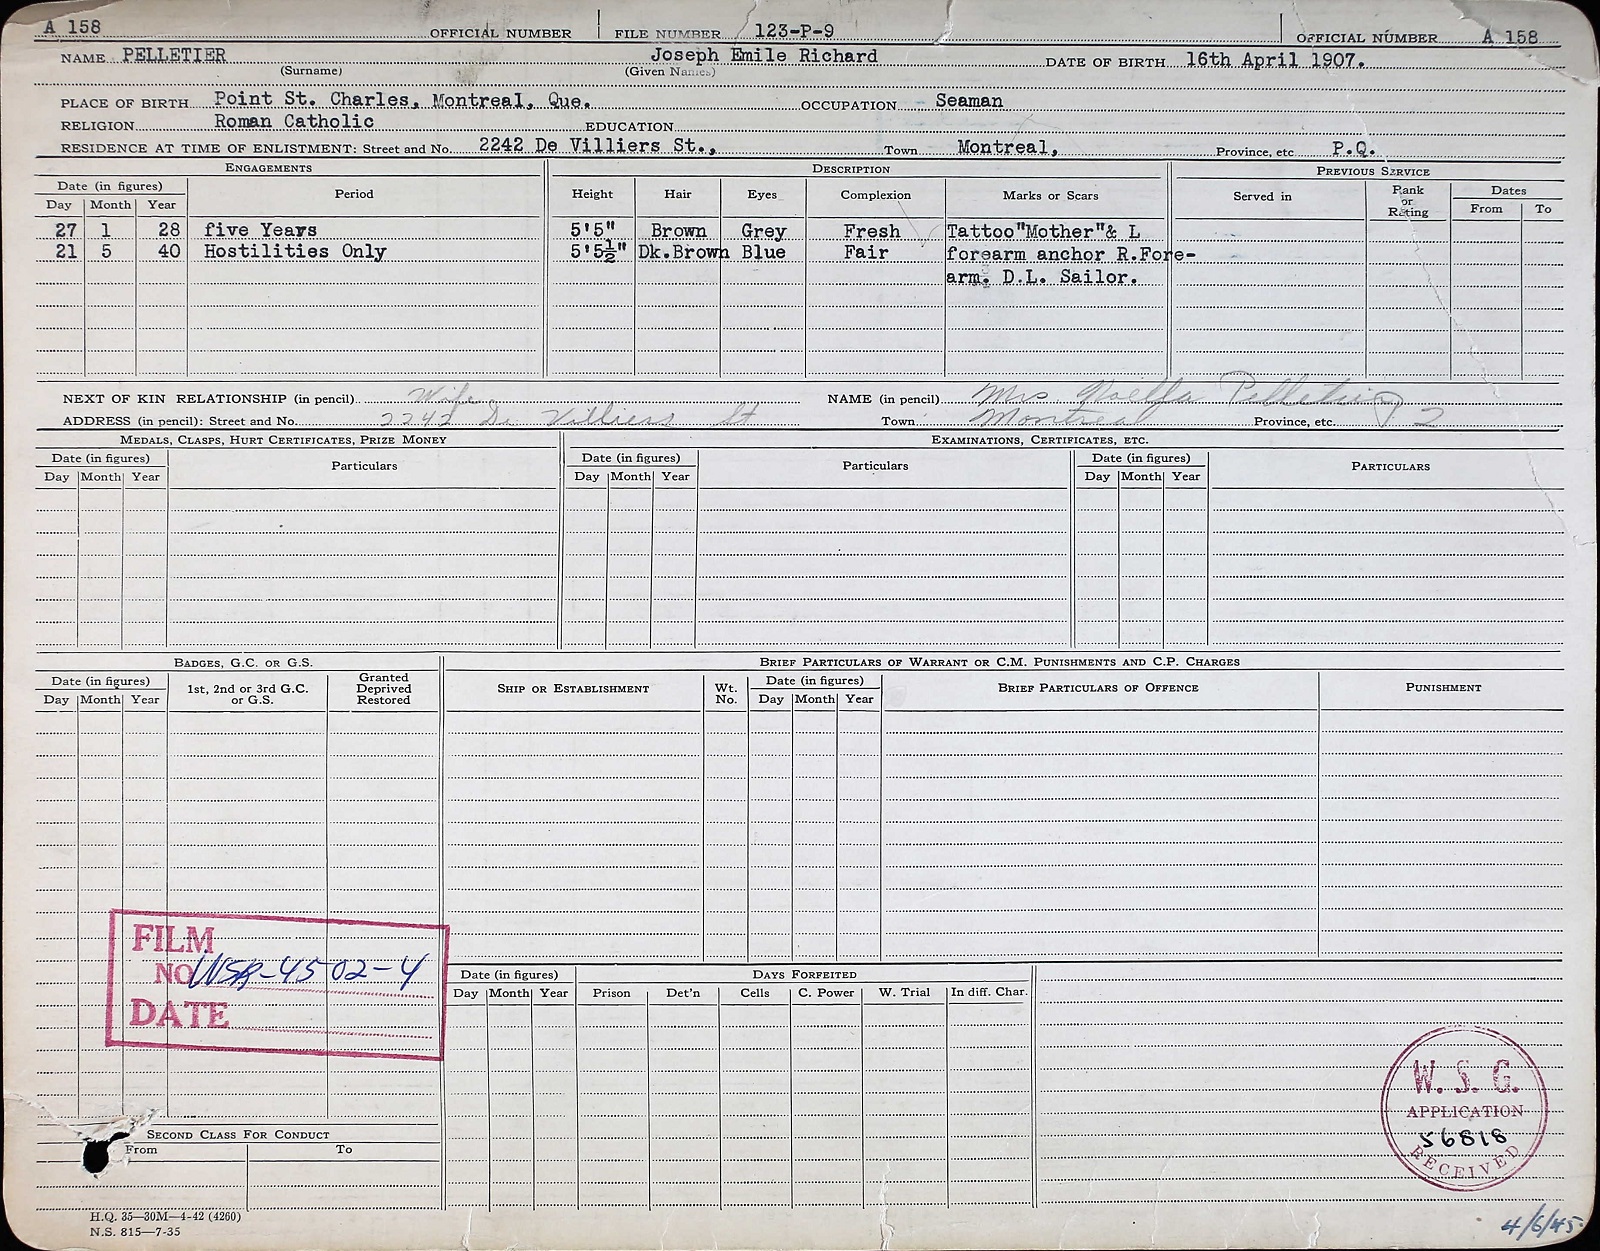 A 158 OFFICIAL NUMBER FILE NUMBER 123-P-9 OFFICIAL NUMBER A 158
NAME PELLETIER Joseph Emile Richard DATE OF BIRTH 16th April 1907.
(Surname) (Given Names)
PLACE OF BIRTH Point St. Charles, Montreal, Que. OCCUPATION Seaman
RELIGION Roman Catholic EDUCATION
RESIDENCE AT TIME OF ENLISTMENT: Street and No. 2242 De Villiers St., Town Montreal, Province, etc P.Q.
ENGAGEMENTS DESCRIPTION PREVIOUS SERVICE
Date (in figures) Period Height Hair Eyes Complexion Marks or Scars Served in Rank or Rating Dates
Day Month Year From To
27 1 28 five Years 5'5" Brown Grey Fresh Tattoo"Mother"& L
21 5 40 Hostilities Only 5'5½" Dk.Brown Blue Fair forearm anchor R.Fore-
arm. D.L. Sailor.
NEXT OF KIN RELATIONSHIP (in pencil) Wife NAME (in pencil) Mrs Pelletier
ADDRESS (in pencil): Street and No. 2242 De Villiers St Town Montreal Province, etc. P2
MEDALS, CLASPS, HURT CERTIFICATES, PRIZE MONEY EXAMINATIONS, CERTIFICATES, ETC.
Date (in figures) Particulars Date (in figures) Particulars Date (in figures) PARTICULARS
Day Month Year Day Month Year Day Month Year
BADGES, G.C. OR G.S. BRIEF PARTICULARS OF WARRANT OR C.M. PUNISHMENTS AND C.P. CHARGES
Date (in figures) 1st, 2nd or 3rd G.C. or G.S. Granted Deprived Restored SHIP OR ESTABLISHMENT Wt. No. Date (in figures) BRIEF PARTICULARS OF OFFENCE PUNISHMENT
Day Month Year Day Month Year
FILM
NO WSR-4502-4
DATE
Date (in figures) DAYS FORFEITED
Day Month Year Prison Det'n Cells C. Power W. Trial In diff. Char.
W. S. G.
APPLICATION
56818
RECEIVED
SECOND CLASS FOR CONDUCT
From To
H.Q. 35—30M—4-42 (4260)
N.S. 815—7-35
4/6/45